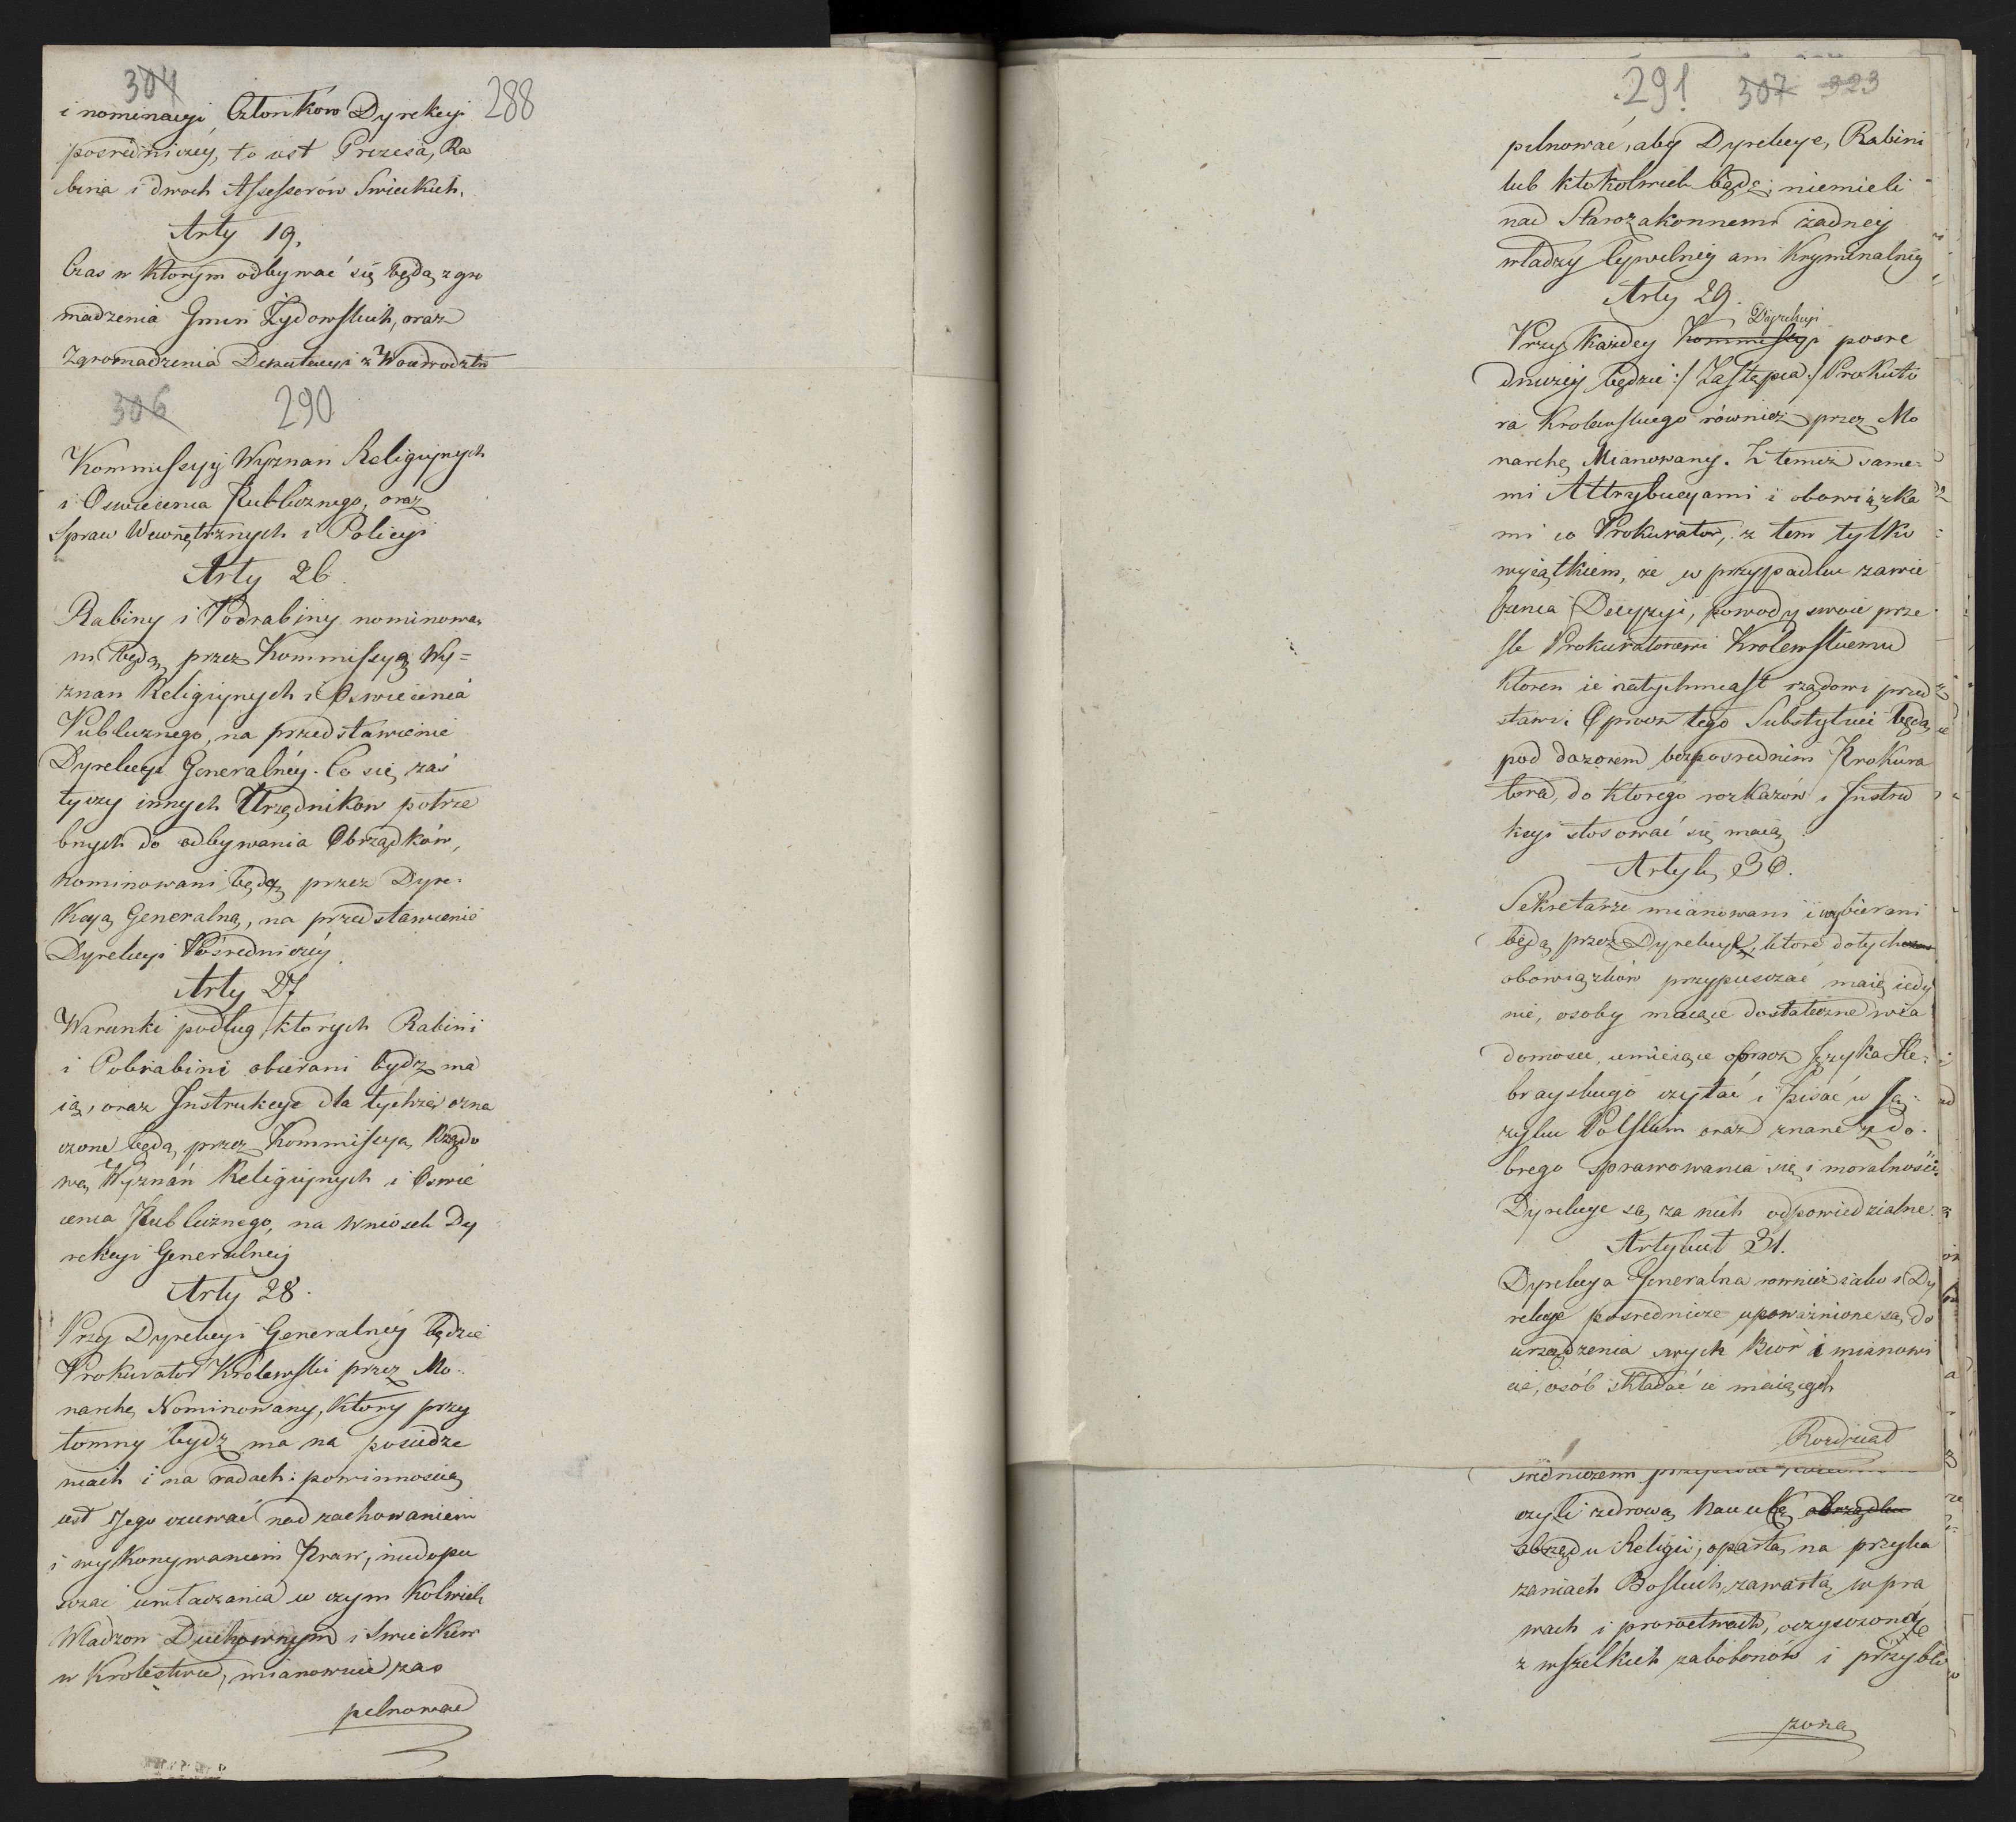 304
288
i nominacyi Członków Dyrekcyi
posredniczey, to iest Prezesa, Ra
bina i dwoch Assessorów Swieckich.
Arty 19.
Czas w którym odbywać się będą zgro
madzenia Gmin Żydowskich, oraz
Zgromadzenia Deputacyi z Woiewodztw
306
290
Kommissyi Wyznan Religiynych
i Oswiecenia Publicznego, oraz
Spraw Wewnętrznych i Policyi
Arty 26.
Rabiny i Podrabiny nominowa
ni będą, przez Kommissyą Wy=
znan Religiynych i Oswiecenia
Publicznego, na przedstawienie
Dyrekcyi Generalnéy. Co się zaś
tyczy innych Urzędnikow potrze
bnych do odbywania Obrządków,
nominowani będą, przez Dyre-
kcyą Generalną, na przedstawienie
Dyrekcyi Pośredniczéy.
Arty 27
Warunki podług ktorych Rabini
i Pobrabini obierani bydź ma
ią, oraz Instrukcye dla tychże ozna
czone będą, przez Kommissyą Rządo
wą Wyznań Religiynych i Oswie
cenia Publicznego, na wniosek Dy
rekcyi Generalnéy
Arty 28.
Przy Dyrekcyi Generalnéy będzie
Prokurator Królewski przez Mo-
narchę Nominowany, który przy
tomny bydź ma na posiedze
niach i na radach: powinnoscią
iest Jego czuwać nad zachowaniem
i wykonywaniem Praw, niedopu
szczać umtaczania w czym kolwiek
Władzom Duchownym i Swieckim
w Krolestwie, mianowicie zas
pilnować
291. 307 323
pilnować, aby Dyrekcye, Rabini
lub ktokolwiek bądź; niemieli
nad Starozakonnemi żadnéy
władzy Cywilnéy ani Kryminalnéy
Arty 29.
Dyrekcyi
Przy każdey Kommissyi posre
dniczéy będzie :/ Zastępca /: Prokuto
ra Krolewskiego również przez Mo
narchę Mianowany. Z temiż same-
mi Attrybucyami i obowiązka
mi co Prokurator, z tem tylko
wyiątkiem, że w przypadku zawie
szenia Decyzyi, powody swoie prze
śle Prokuratorowi Krolewskiemu
ktoren ie natychmiast rządowi przed
stawi. Oprocz tego Substytuci będą
pod dozorem bezposrednim Prokura
tora, do ktorego rozkazów i Instru
kcyi stosować się maią.
Artyk 30.
Sekretarze mianowani i wybierani
będą przez Dyrekcye, które do tych
obowiązków przypuszczać maią iedy
nie, osoby maiące dostateczne wia
domosci, umieiące oprócz Języka He-
brayskiego czytać i Pisać w Ję-
zyku Polskim oraz znane z do-
brego sprawowania się i moralności
Dyrekcye są za nich odpowiedzialne.
Artykuł 31.
Dyrekcya Generalna rownież iako i Dy
rekcye posrednicze upoważnione są, do
urządzenia swych Biór i mianowi
cie, osób składać ie maiących
Rozdział
czyli zdrową Naukę obrządku
obrzędu Religii, opartą na przyka
zaniach Boskich, zawartą w pra
wach i proroctwach, oczyszczoną
z wszelkich zabobonów i przybli
żoną